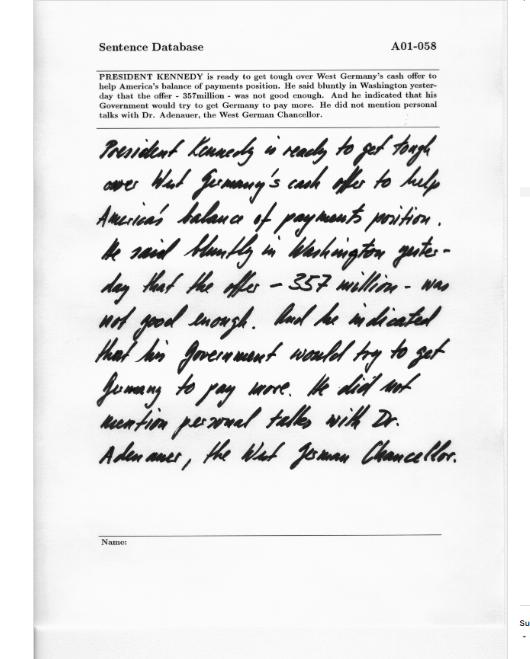 Sentence Database A01-058
PRESIDENT KENNEDY is ready to get tough over West Germany's cash offer to
help America's balance of payments position. He said bluntly in Washington yester-
day that the offer - 357million - was not good enough. And he indicated that his
Government would try to get Germany to pay more. He did not mention personal
talks with Dr. Adenauer, the West German Chancellor.
President Kennedy is ready to get tough
over West Germany's cash offer to help
America's balance of payments position.
He said bluntly in Washington yester-
day that the offer - 357 million - was
not good enough. And he indicated
that his Government would try to get
Germany to pay more. He did not
mention personal talks with Dr.
Adenauer, the West German Chancellor.
Name:
Su
-